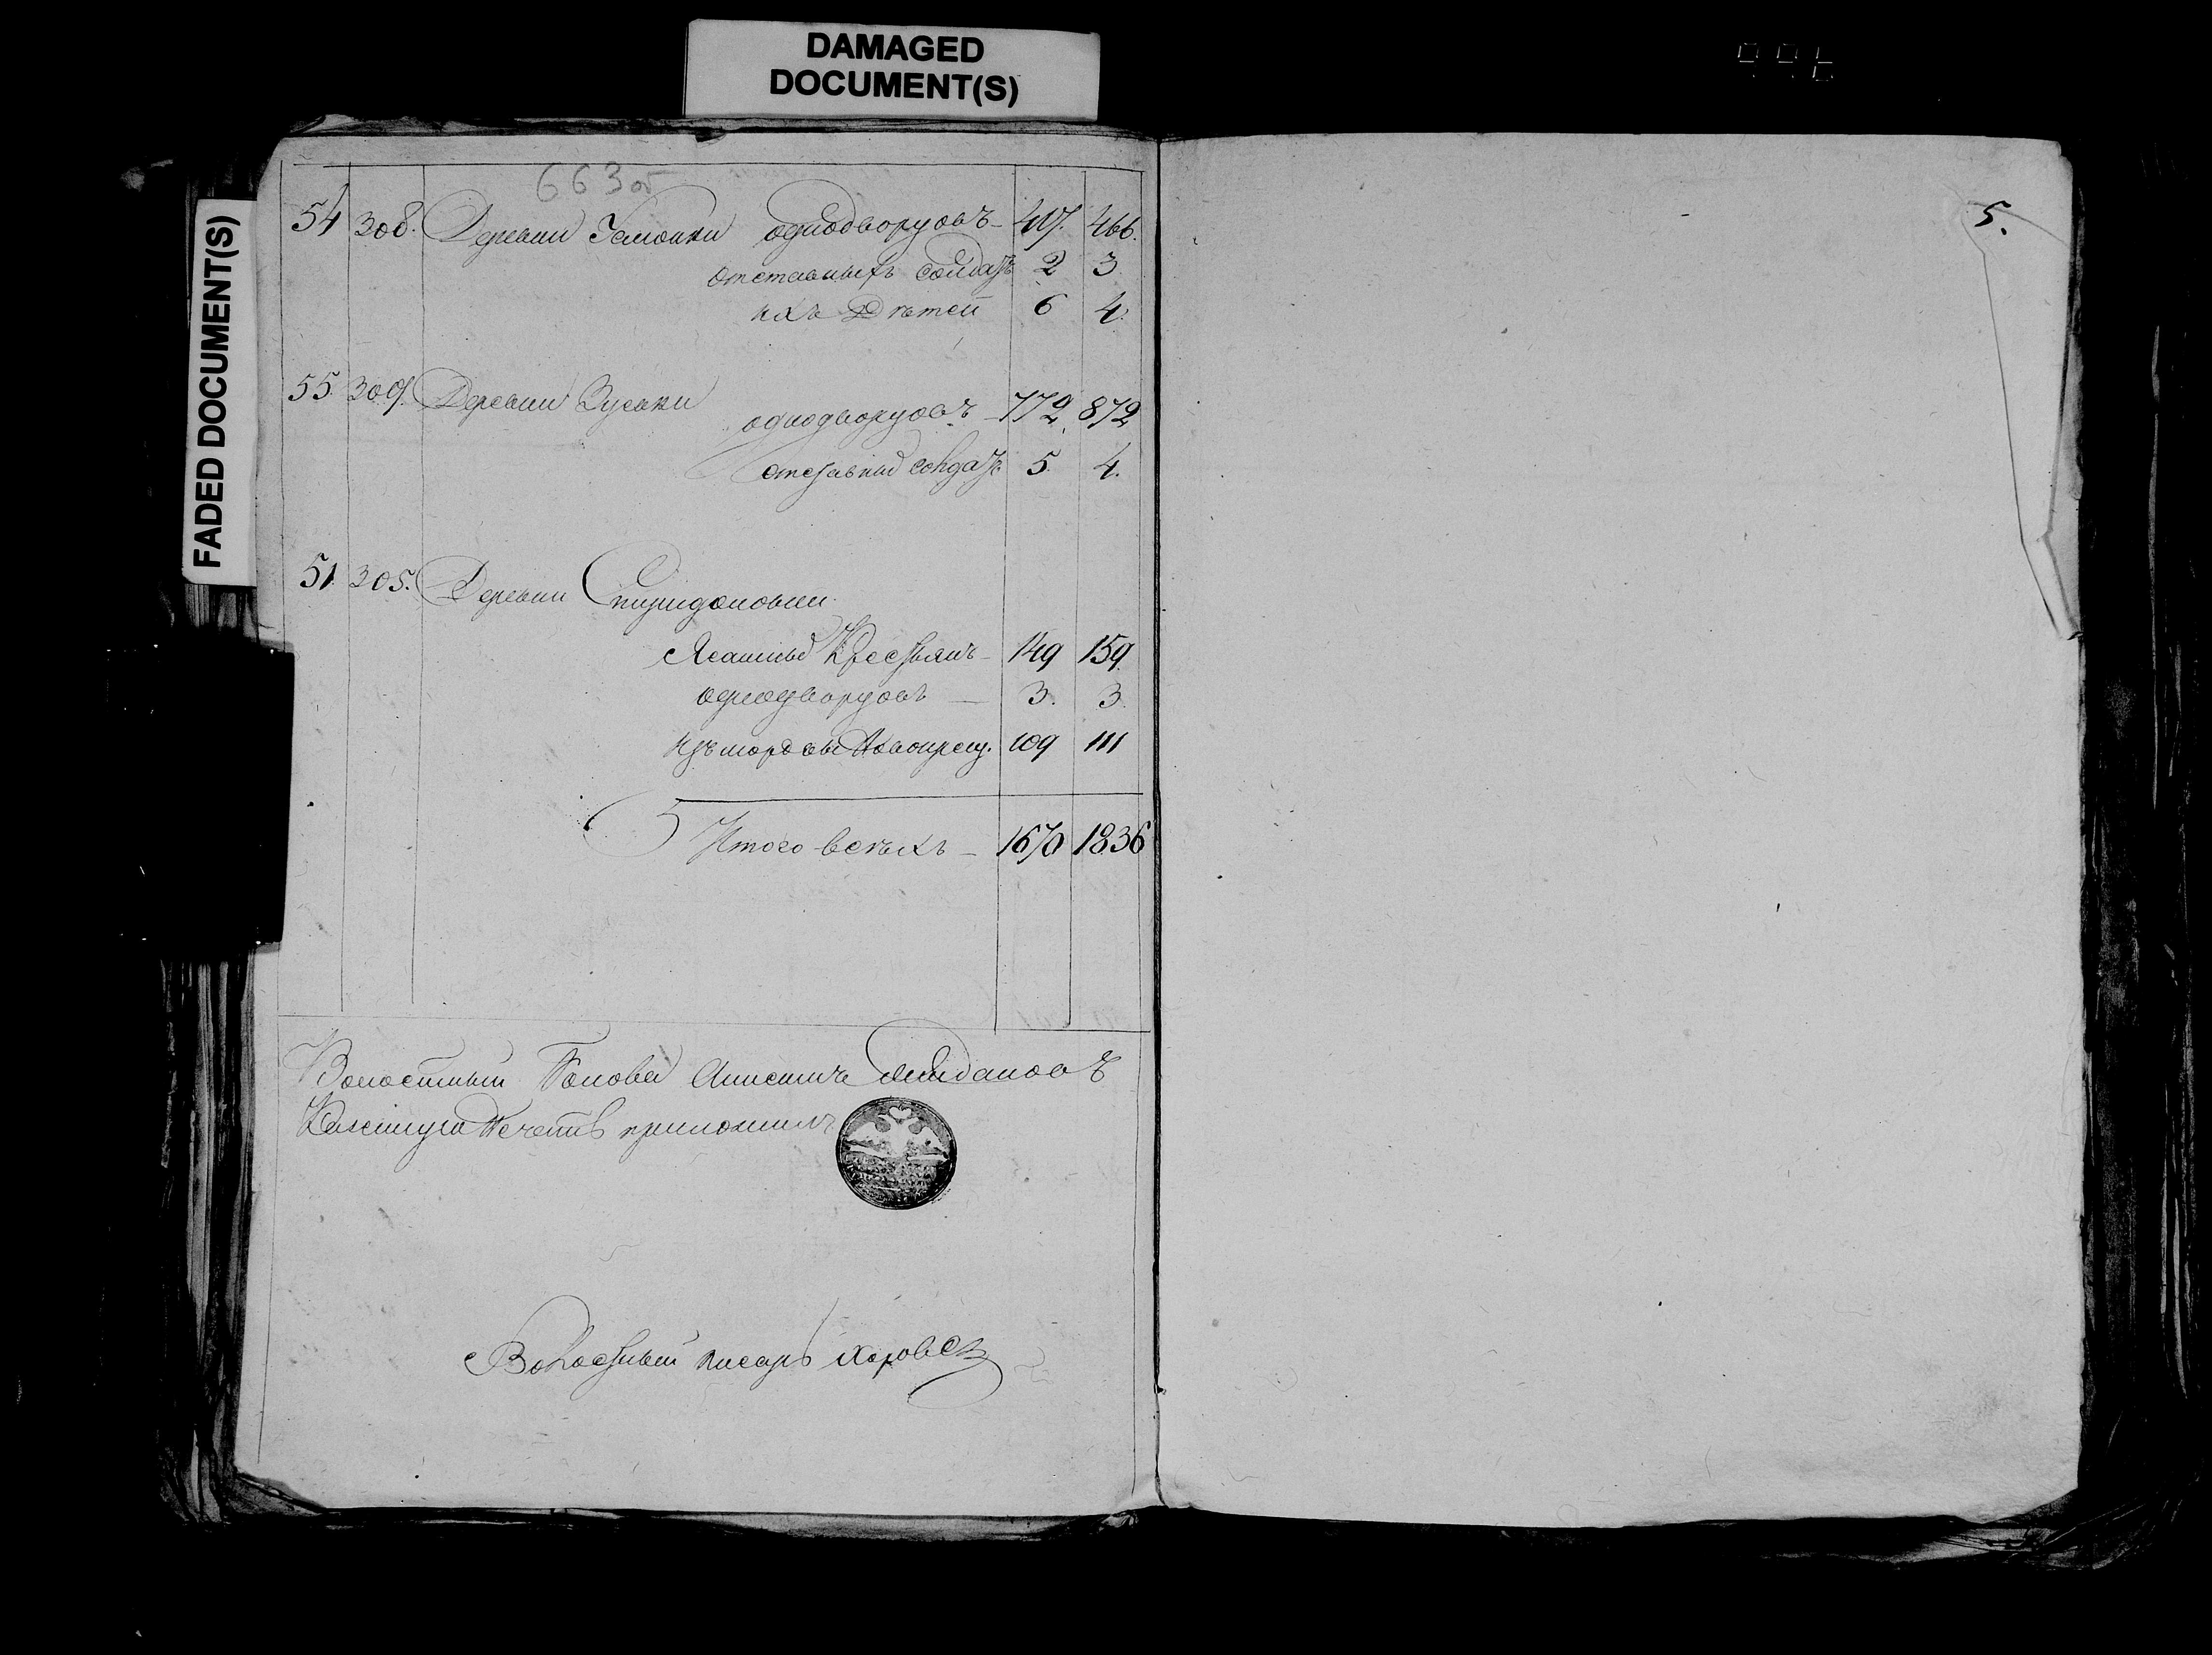 DAMAGED
DOCUMENT(S)
FADED DOCUMENT(S)
663 об
54 308. Деревни Усмонки однодворцовъ 417. 466.
отставныхъ солдатъ 2 3
ихъ Дѣтей 6 4.
55. 309. Деревни Зуевки
однодворцовъ 772 872
отставных солдатъ 5. 4.
51. 305. Деревни Спиридоновки
Ясашных Крестьянъ 149 159
однодворцовъ 3. 3
изъ мордвы Новокрещ. 109 111
Итого всѣхъ 1670 1836
Волостный Голова
Казенную Печать приложилъ
Волостный писарь
5.